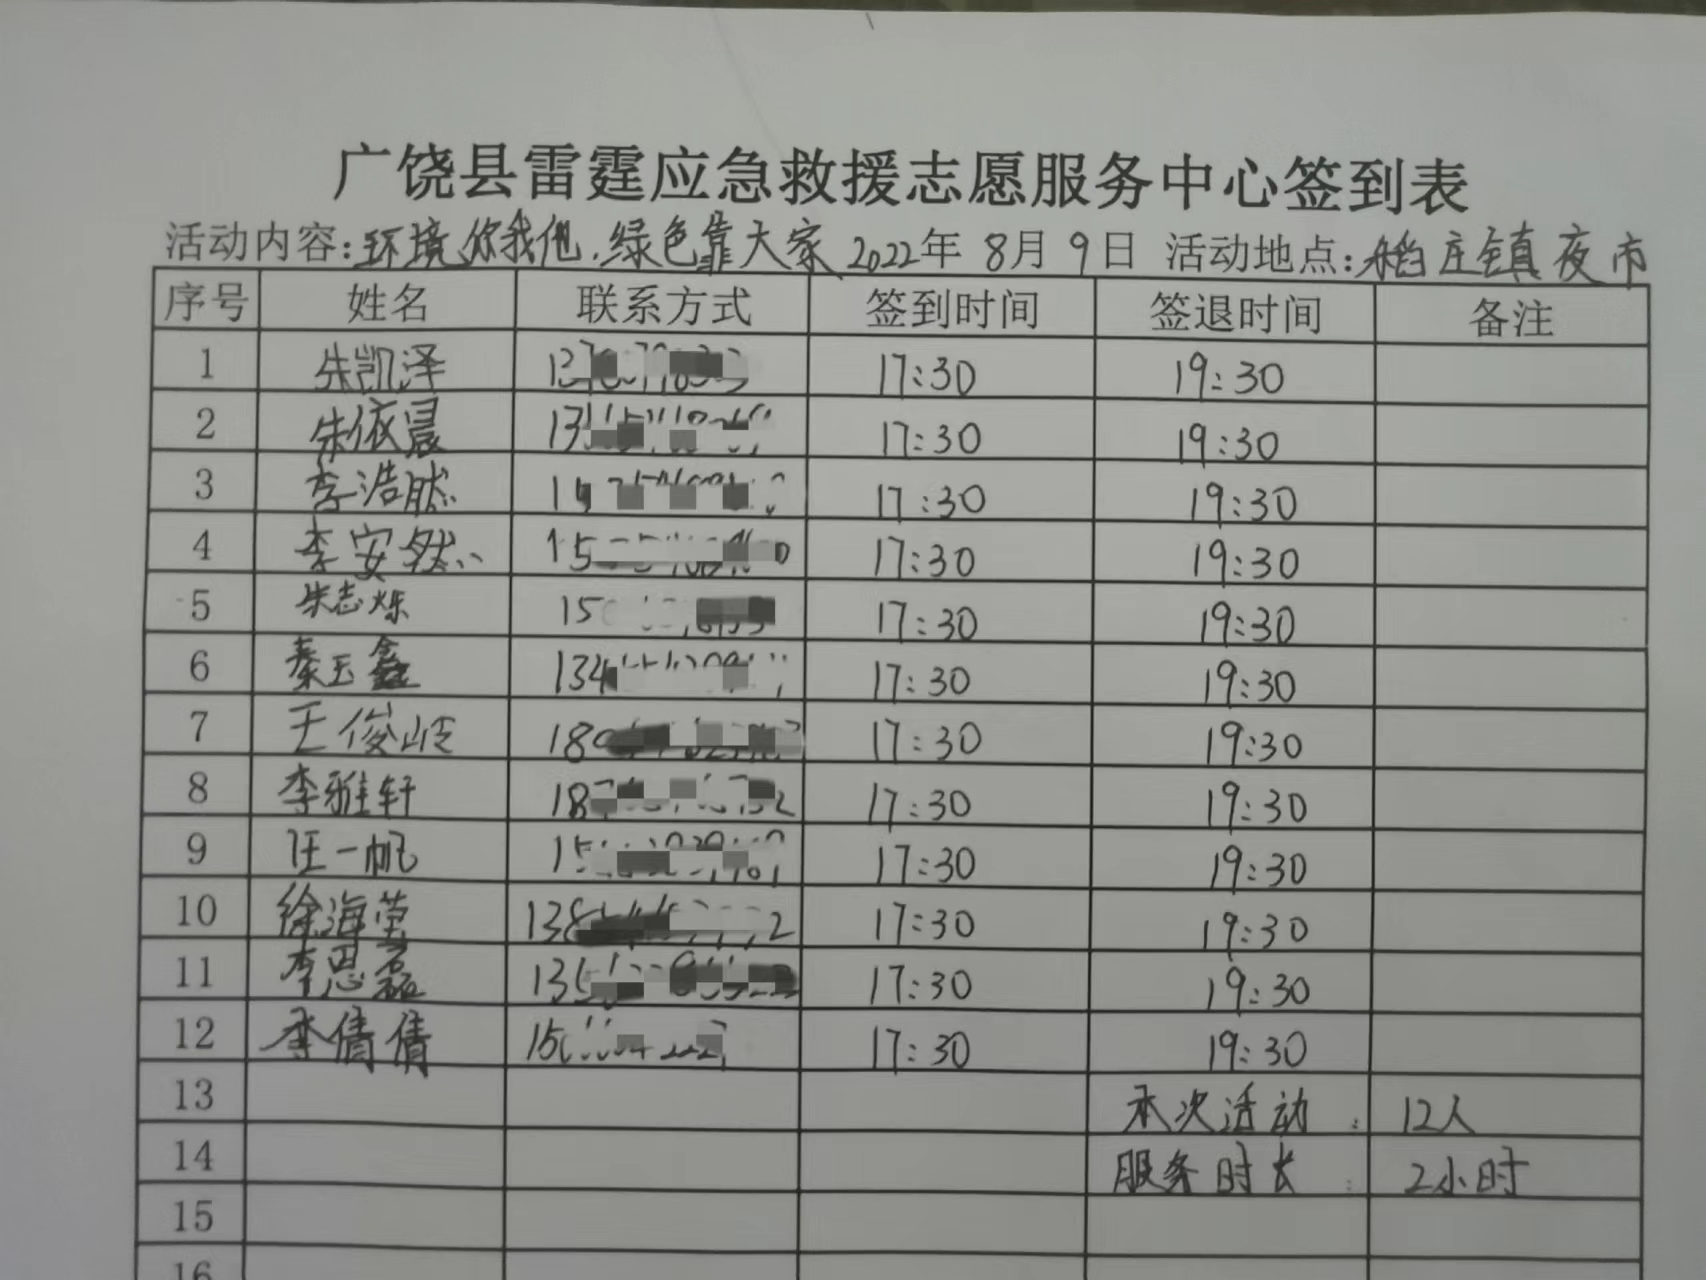 广饶县雷霆应急救援志愿服务中心签到表
活动内容:环境你我他.绿色靠大家 2022年 8月 9日 活动地点:稻庄镇夜市
序号 姓名 联系方式 签到时间 签退时间 备注
1 朱凯泽 17:30 19:30
2 朱依晨 17:30 19:30
3 李浩然 17:30 19:30
4 李安然 17:30 19:30
5 朱志烁 17:30 19:30
6 秦玉鑫 134 17:30 19:30
7 王俊岐 17:30 19:30
8 李雅轩 17:30 19:30
9 任一帆 17:30 19:30
10 徐海莹 17:30 19:30
11 李思磊 17:30 19:30
12 李倩倩 17:30 19:30
13 本次活动: 12人
14 服务时长: 2小时
15
16